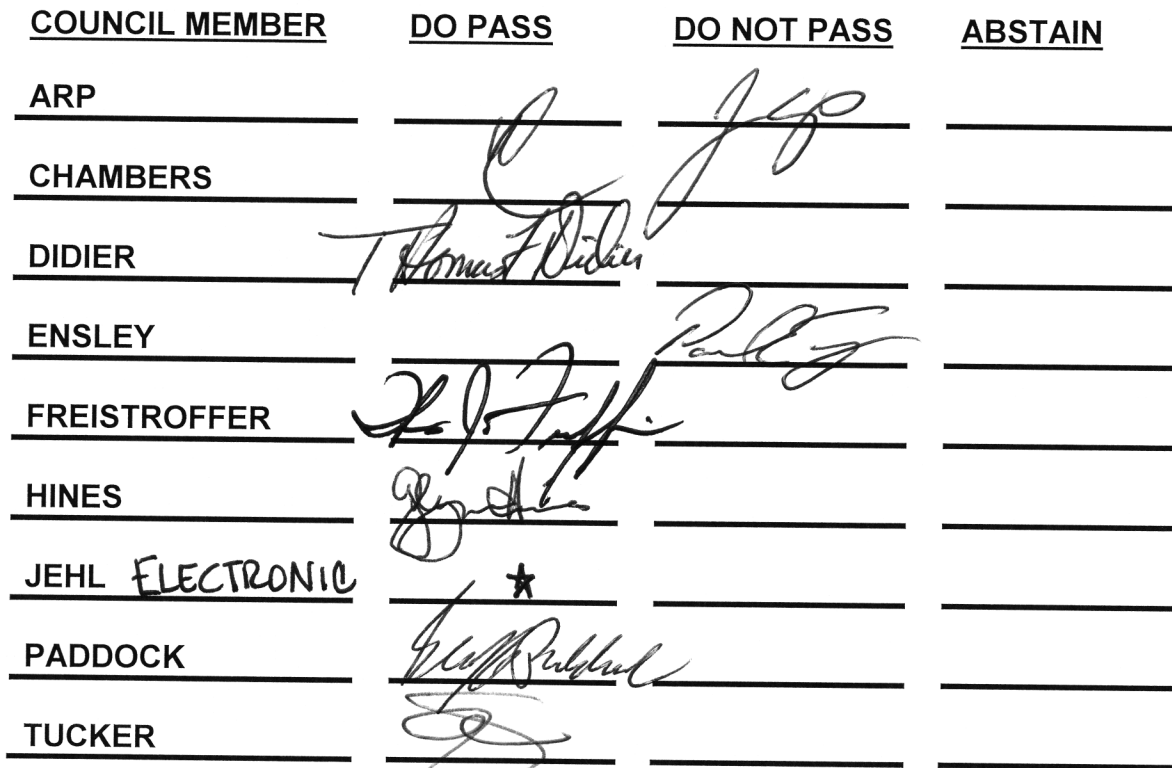 COUNCIL MEMBER DO PASS DO NOT PASS ABSTAIN
ARP
CHAMBERS
DIDIER Thomas F Didier
ENSLEY
FREISTROFFER
HINES
JEHL ELECTRONIC ★
PADDOCK
TUCKER